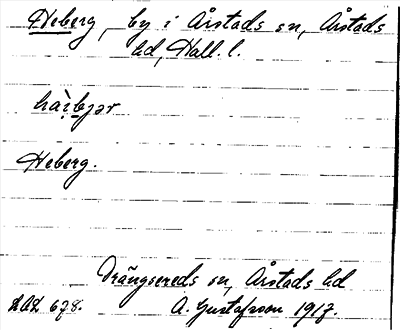 Heberg, by i Årstads sn, Årstads
hd, Hall. l.
hài̯bjər
Heberg.
Drängsereds sn, Årstads hd
LAL 678. A. Gustafsson 1917.